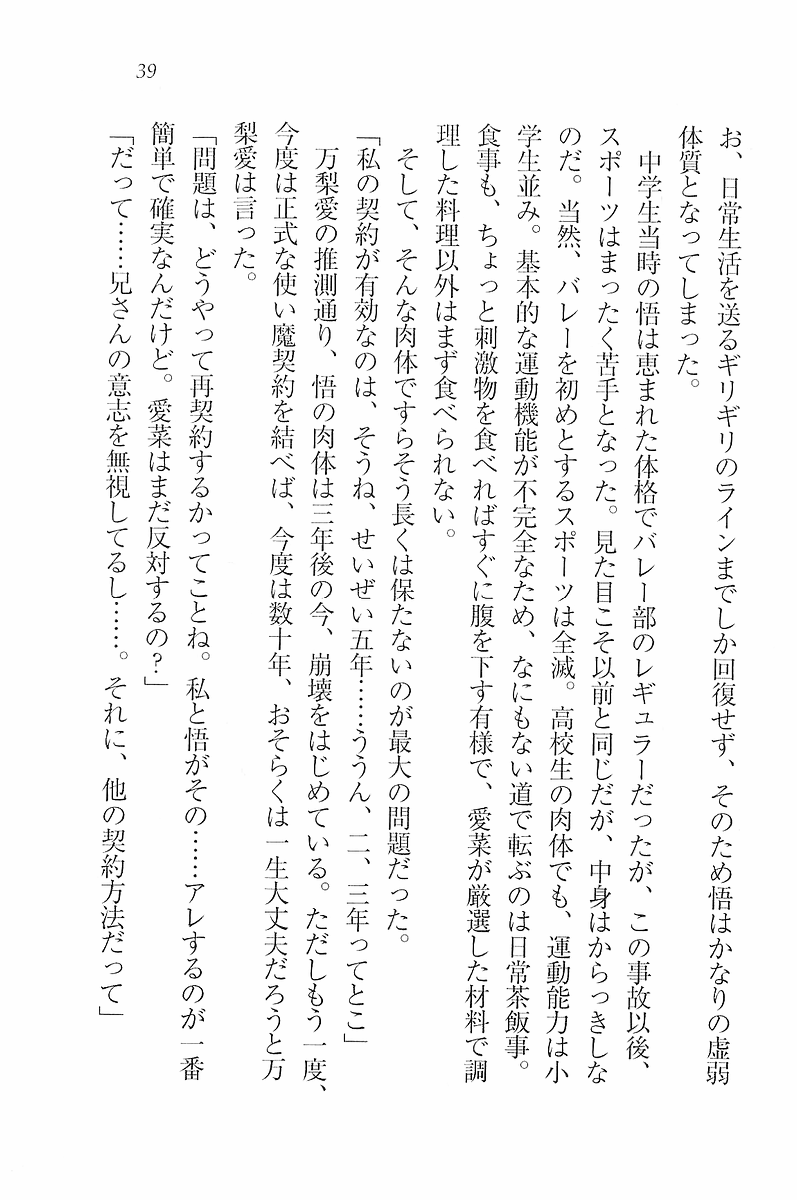 39
お、日常生活を送るギリギリのラインまでしか回復せず、そのため悟はかなりの虚弱
体質となってしまった。
中学生当時の悟は恵まれた体格でバレー部のレギュラーだったが、この事故以後、
スポーツはまったく苦手となった。見た目こそ以前と同じだが、中身はからっきしな
のだ。当然、バレーを初めとするスポーツは全滅。高校生の肉体でも、運動能力は小
学生並み。基本的な運動機能が不完全なため、なにもない道で転ぶのは日常茶飯事。
食事も、ちょっと刺激物を食べればすぐに腹を下す有様で、愛菜が厳選した材料で調
理した料理以外はまず食べられない。
そして、そんな肉体ですらそう長くは保たないのが最大の問題だった。
「私の契約が有効なのは、そうね、せいぜい五年……ううん、二、三年ってとこ」
万梨愛の推測通り、悟の肉体は三年後の今、崩壊をはじめている。ただしもう一度、
今度は正式な使い魔契約を結べば、今度は数十年、おそらくは一生大丈夫だろうと万
梨愛は言った。
「問題は、どうやって再契約するかってことね。私と悟がその……アレするのが一番
簡単で確実なんだけど。愛菜はまだ反対するの?」
「だって……兄さんの意志を無視してるし……。それに、他の契約方法だって」